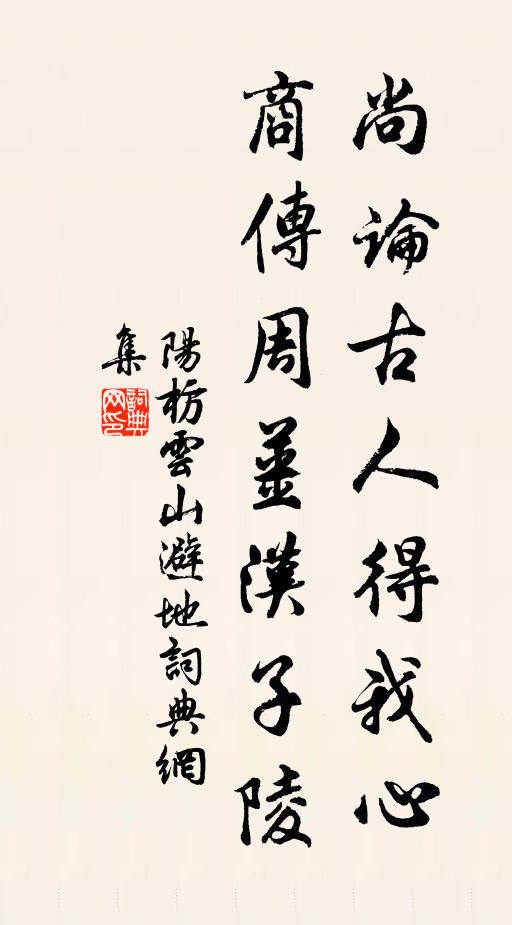 尚論古人得我心
商傳周薑漢子陵
陽枋雲山避地詞典網
集
詞典
网印